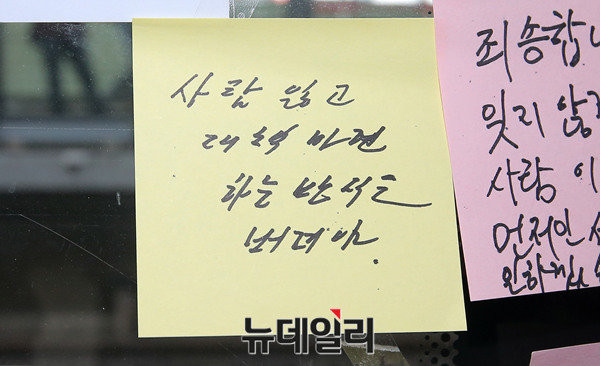 사람 잃고
대책 마련
하는 방식은
버려야.
죄송합니
잊지 않
사람이
뉴데일리